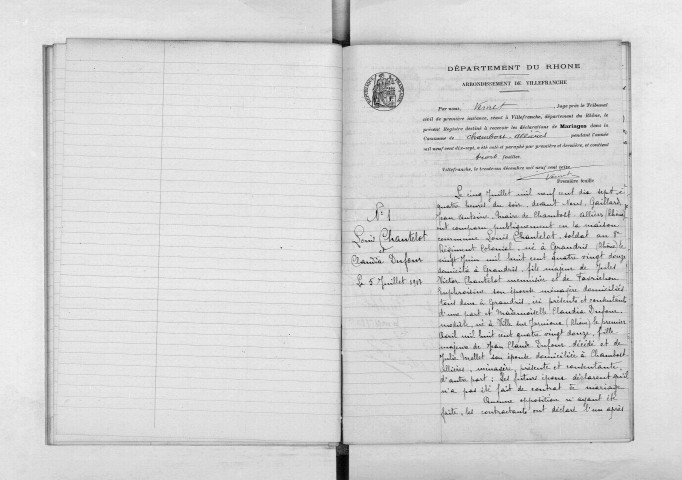 DÉPARTEMENT DU RHONE
ARRONDISSEMENT DE VILLEFRANCHE
Par nous, Vernet, Juge près le Tribunal
civil de première instance, séant à Villefranche, département du Rhône, le
présent Registre destiné à recevoir les déclarations de Mariages dans la
Commune de Chambost-Allières pendant l'année
mil neuf cent dix-sept, a été coté et paraphé par première et dernière, et contient
feuilles.
Villefranche, le décembre mil neuf cent seize
Première feuille
N° 1
Louis Chantelot
et
Claudia Dufour
Le 5 Juillet 1917
Le cinq Juillet mil neuf cent dix sept, à
quatre heures du soir, devant nous, Gaillard
Jean Antoine, Maire de Chambost-Allières (Rhône)
ont comparu publiquement en la maison
commune Louis Chantelot, soldat au 8e
Régiment Colonial, né à Grandris (Rhône) le
vingt Juin mil huit cent quatre vingt douze
domicilié à Grandris, fils majeur de Jules
Victor Chantelot menuisier et de
Euphrosine son épouse ménagère domiciliés
tous deux à Grandris, ici présents et consentants
d'une part et Mademoiselle Claudia Dufour,
modiste, née à Ville sur Jarnioux (Rhône) le premier
Avril mil huit cent quatre vingt douze, fille
majeure de Jean Claude Dufour décédé et de
Julie Mellet son épouse domiciliée à Chambost
Allières, ménagère, présente et consentante,
d'autre part; Les futurs époux déclarent qu'il
n'a pas été fait de contrat de mariage
Aucune opposition n'ayant été
faite, les contractants ont déclaré l'un après